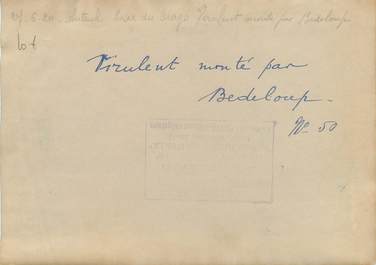 27.6.20. Auteuil Prix du Drago Virulent monté par Bedeloup
Lot
Virulent monté par
Bedeloup.
N° 50